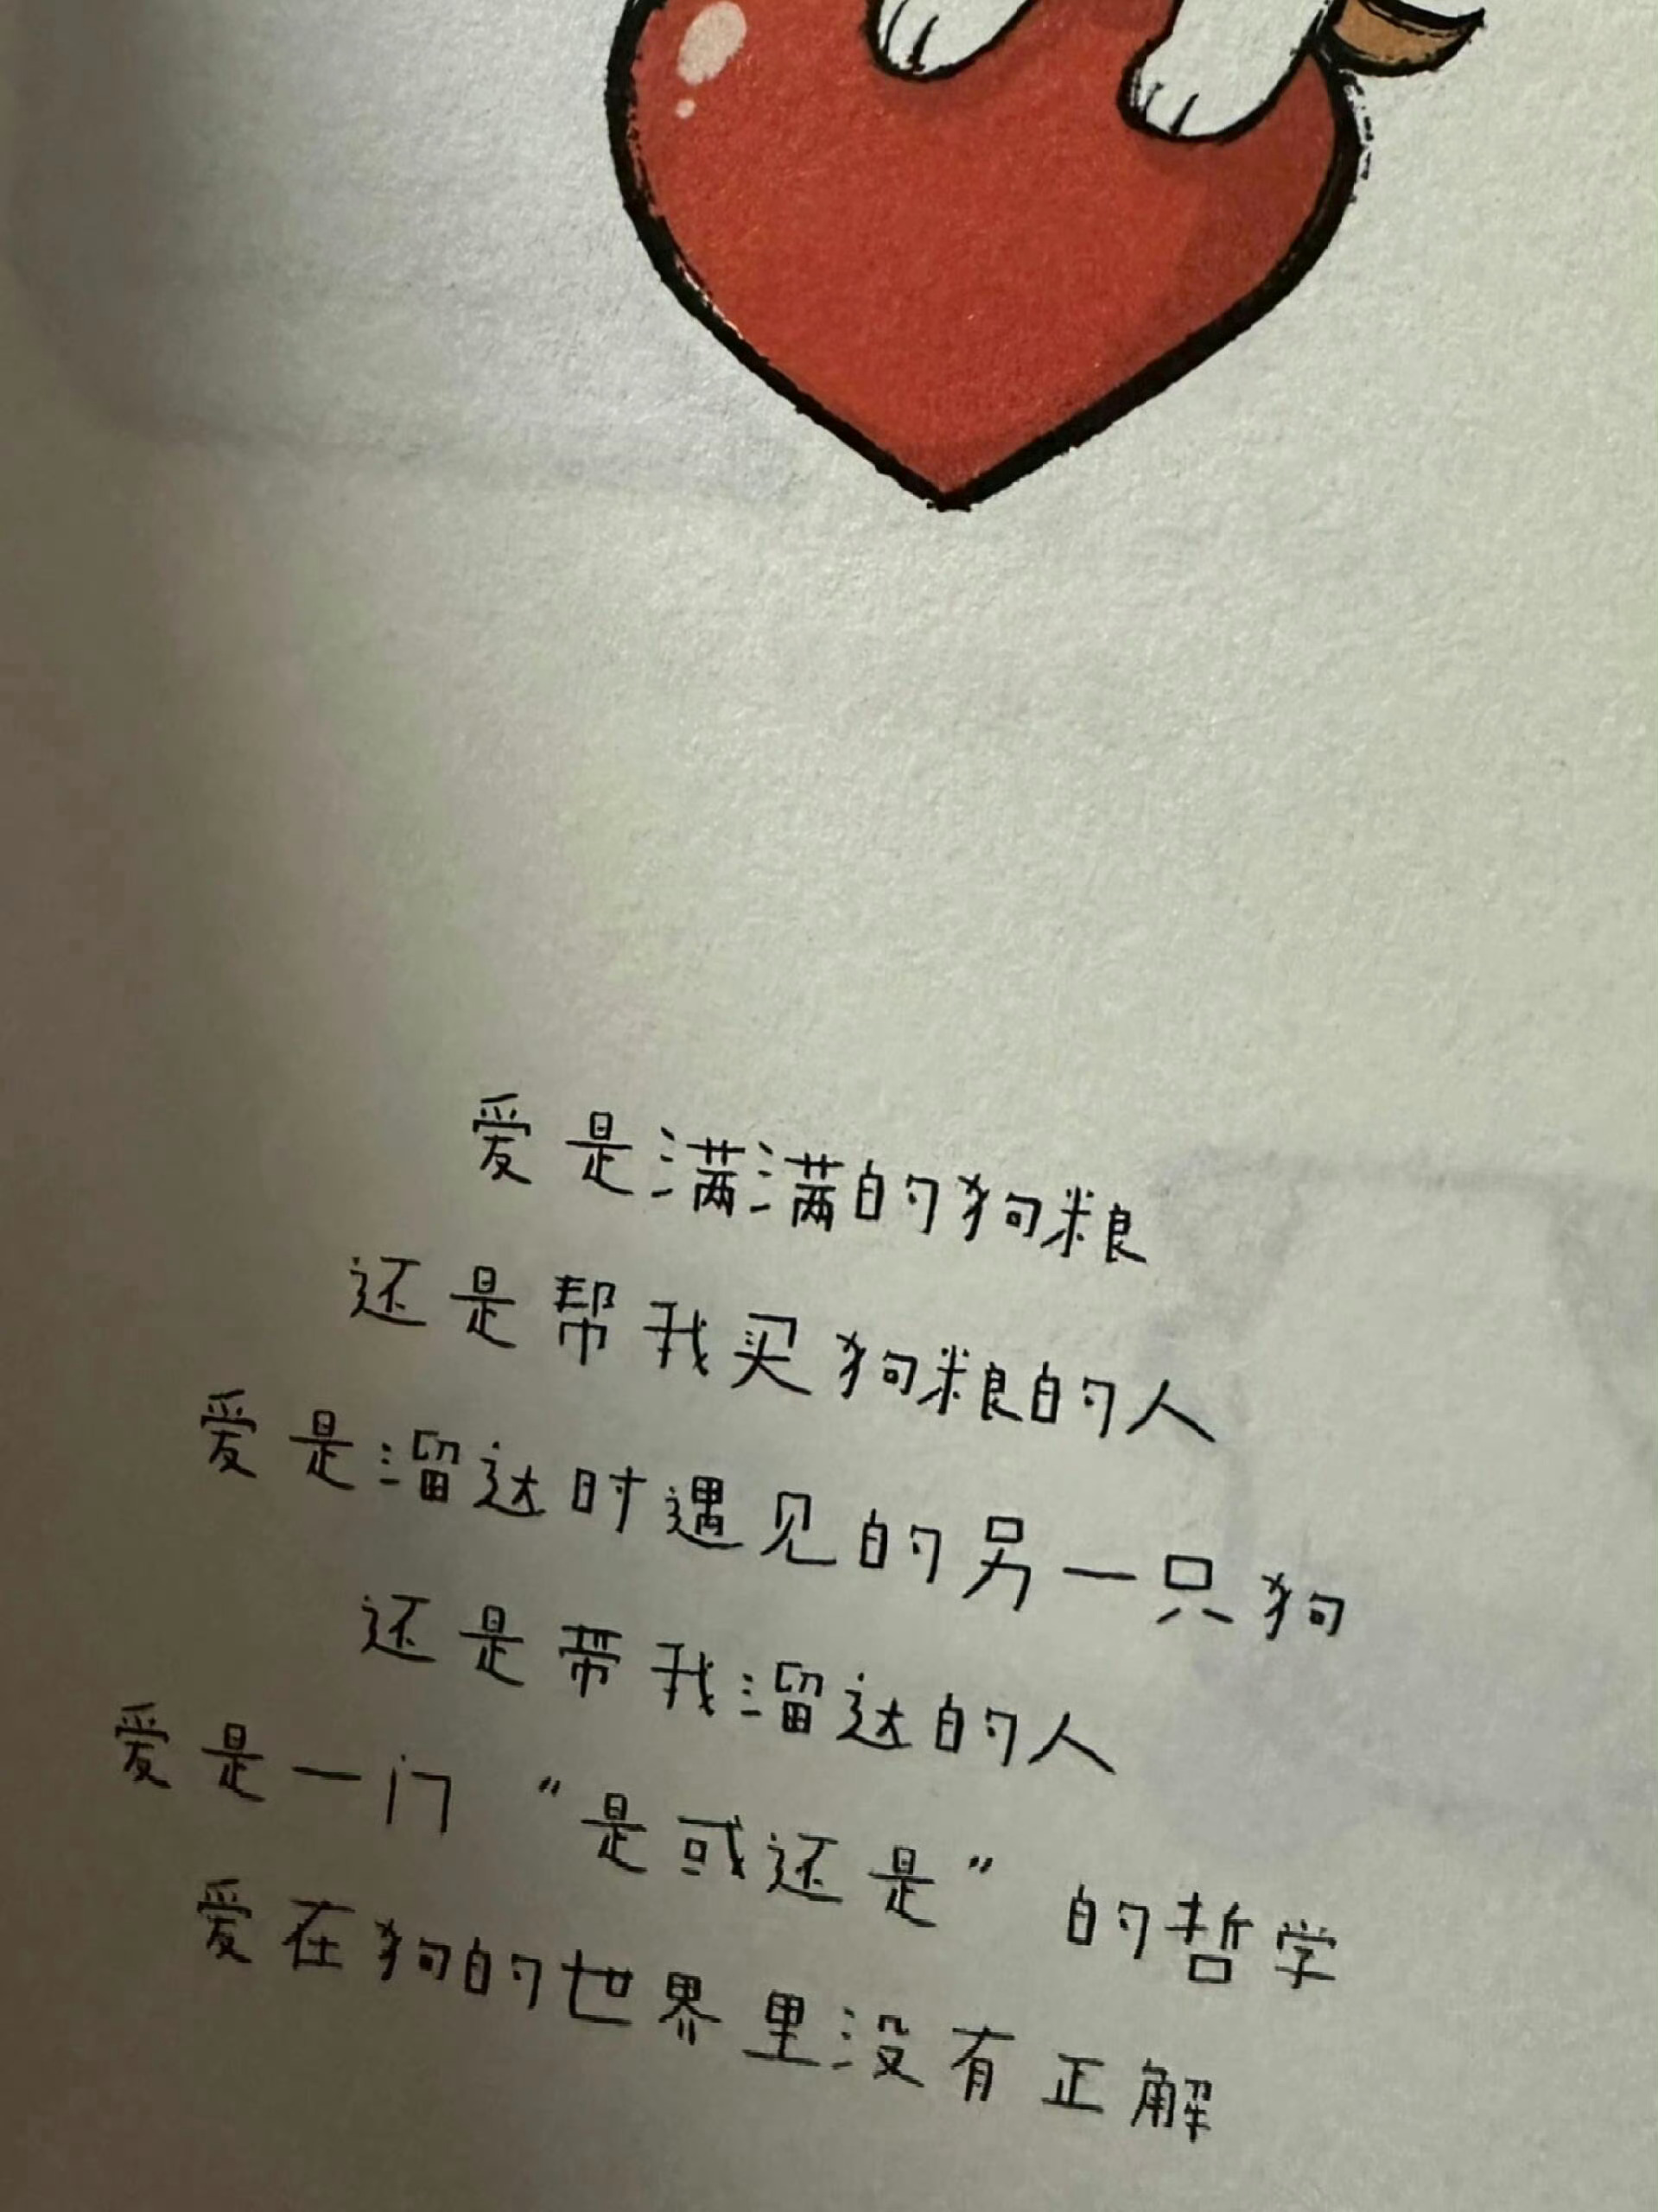 爱是满满的狗粮
还是帮我买狗粮的人
爱是溜达时遇见的另一只狗
还是带我溜达的人
爱是一门“是或还是”的哲学
爱在狗的世界里没有正解